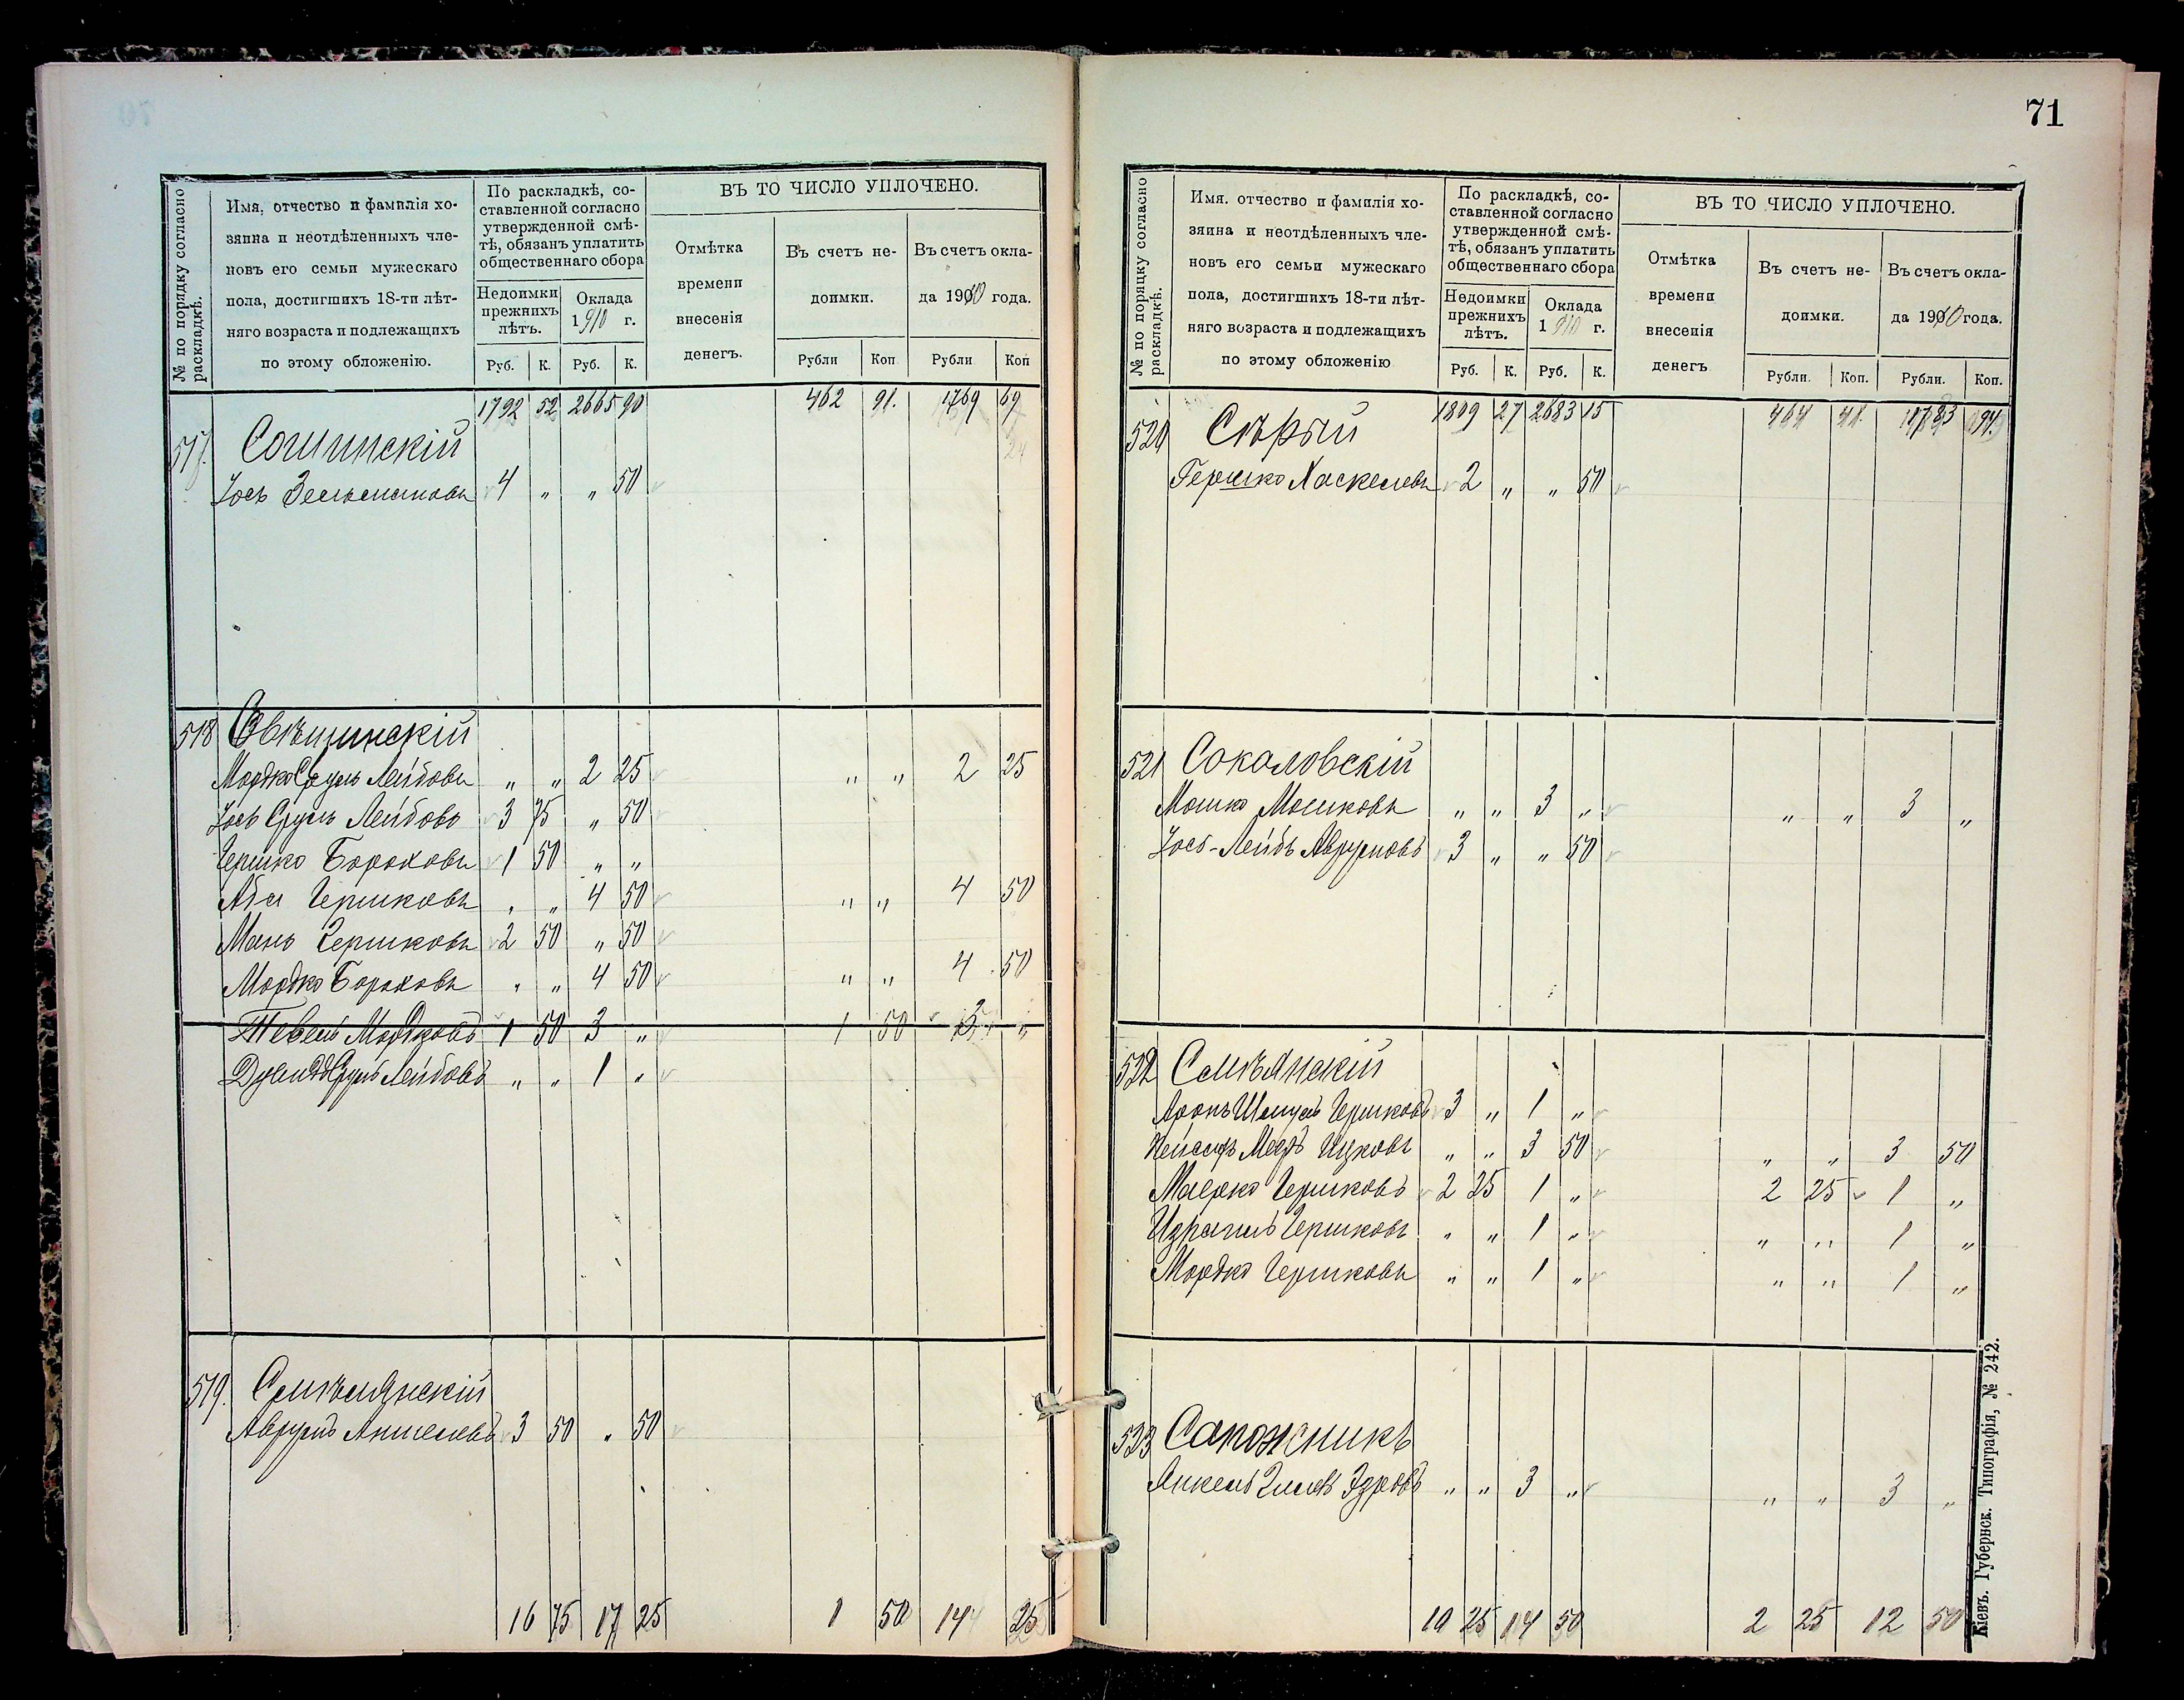 71
№ по порядку согласно раскладкѣ.
Имя, отчество и фамилія хо-
зяина и неотдѣленныхъ чле-
новъ его семьи мужескаго
пола, достигшихъ 18-ти лѣт-
няго возраста и подлежащихъ
по этому обложенію.
По раскладкѣ, со-
ставленной согласно
утвержденной смѣ-
тѣ, обязанъ уплатить
общественнаго сбора
Недоимки прежнихъ лѣтъ.
Оклада 1910 г.
Руб. К. Руб. К.
ВЪ ТО ЧИСЛО УПЛОЧЕНО.
Отмѣтка
времени
внесенія
денегъ.
Въ счетъ не-
доимки.
Въ счетъ окла-
да 1910 года.
Рубли Коп. Рубли Коп
1792 52 2665 90 462 91. 1769 69
517. Сошинскій
Іось Зельмановъ 4 " " 50
518 Свѣщинскій
Мордко Сруль Лейбовъ " " 2 25 " " 2 25
Іось Сруль Лейбовъ 3 75 " 50
Гершко Бороховъ 1 50 " "
Аба Гершковъ " " 4 50 " " 4 50
Мань Гершковъ 2 50 " 50
Мордко Бороховъ " " 4 50 " " 4 50
Тевель Мордковъ 1 50 3 " 1 50 3 "
Сруль Лейбовъ " " 1 "
519. Смѣлянскій
Аврумъ Аншелевъ 3 50 " 50
16 75 17 25 1 50 14 25
№ по порядку согласно раскладкѣ.
Имя. отчество и фамилія хо-
зяина и неотдѣленныхъ чле-
новъ его семьи мужескаго
пола, достигшихъ 18-ти лѣт-
няго возраста и подлежащихъ
по этому обложенію
По раскладкѣ, со-
ставленной согласно
утвержденной смѣ-
тѣ, обязанъ уплатить
общественнаго сбора
Недоимки прежнихъ лѣтъ.
Оклада 1910 г.
Руб. К. Руб. К.
ВЪ ТО ЧИСЛО УПЛОЧЕНО.
Отмѣтка
времени
внесенія
денегъ
Въ счетъ не-
доимки.
Въ счетъ окла-
да 1910 года.
Рубли. Коп. Рубли. Коп.
1809 27 2683 15 464 41. 1783 94.
520 Сѣрый
Гершко Хаскелевъ 2 " " 50
521 Сокаловскій
Мошко Мошковъ " " 3 " " " 3 "
Іось-Лейбъ Аврумовъ 3 " " 50
522 Смѣлянскій
Аронъ Шмуль Гершковъ 3 " 1 "
Мееръ Ицковъ " " 3 50 " " 3 50
Маерко Гершковъ 2 25 1 " 2 25 1 "
Израиль Гершковъ " " 1 " " " 1 "
Мордко Гершковъ " " 1 " " " 1 "
523 Сапожникъ
Янкель " " 3 " " " 3 "
10 25 14 50 2 25 12 50
Кіевъ. Губернск. Типографія, № 242.